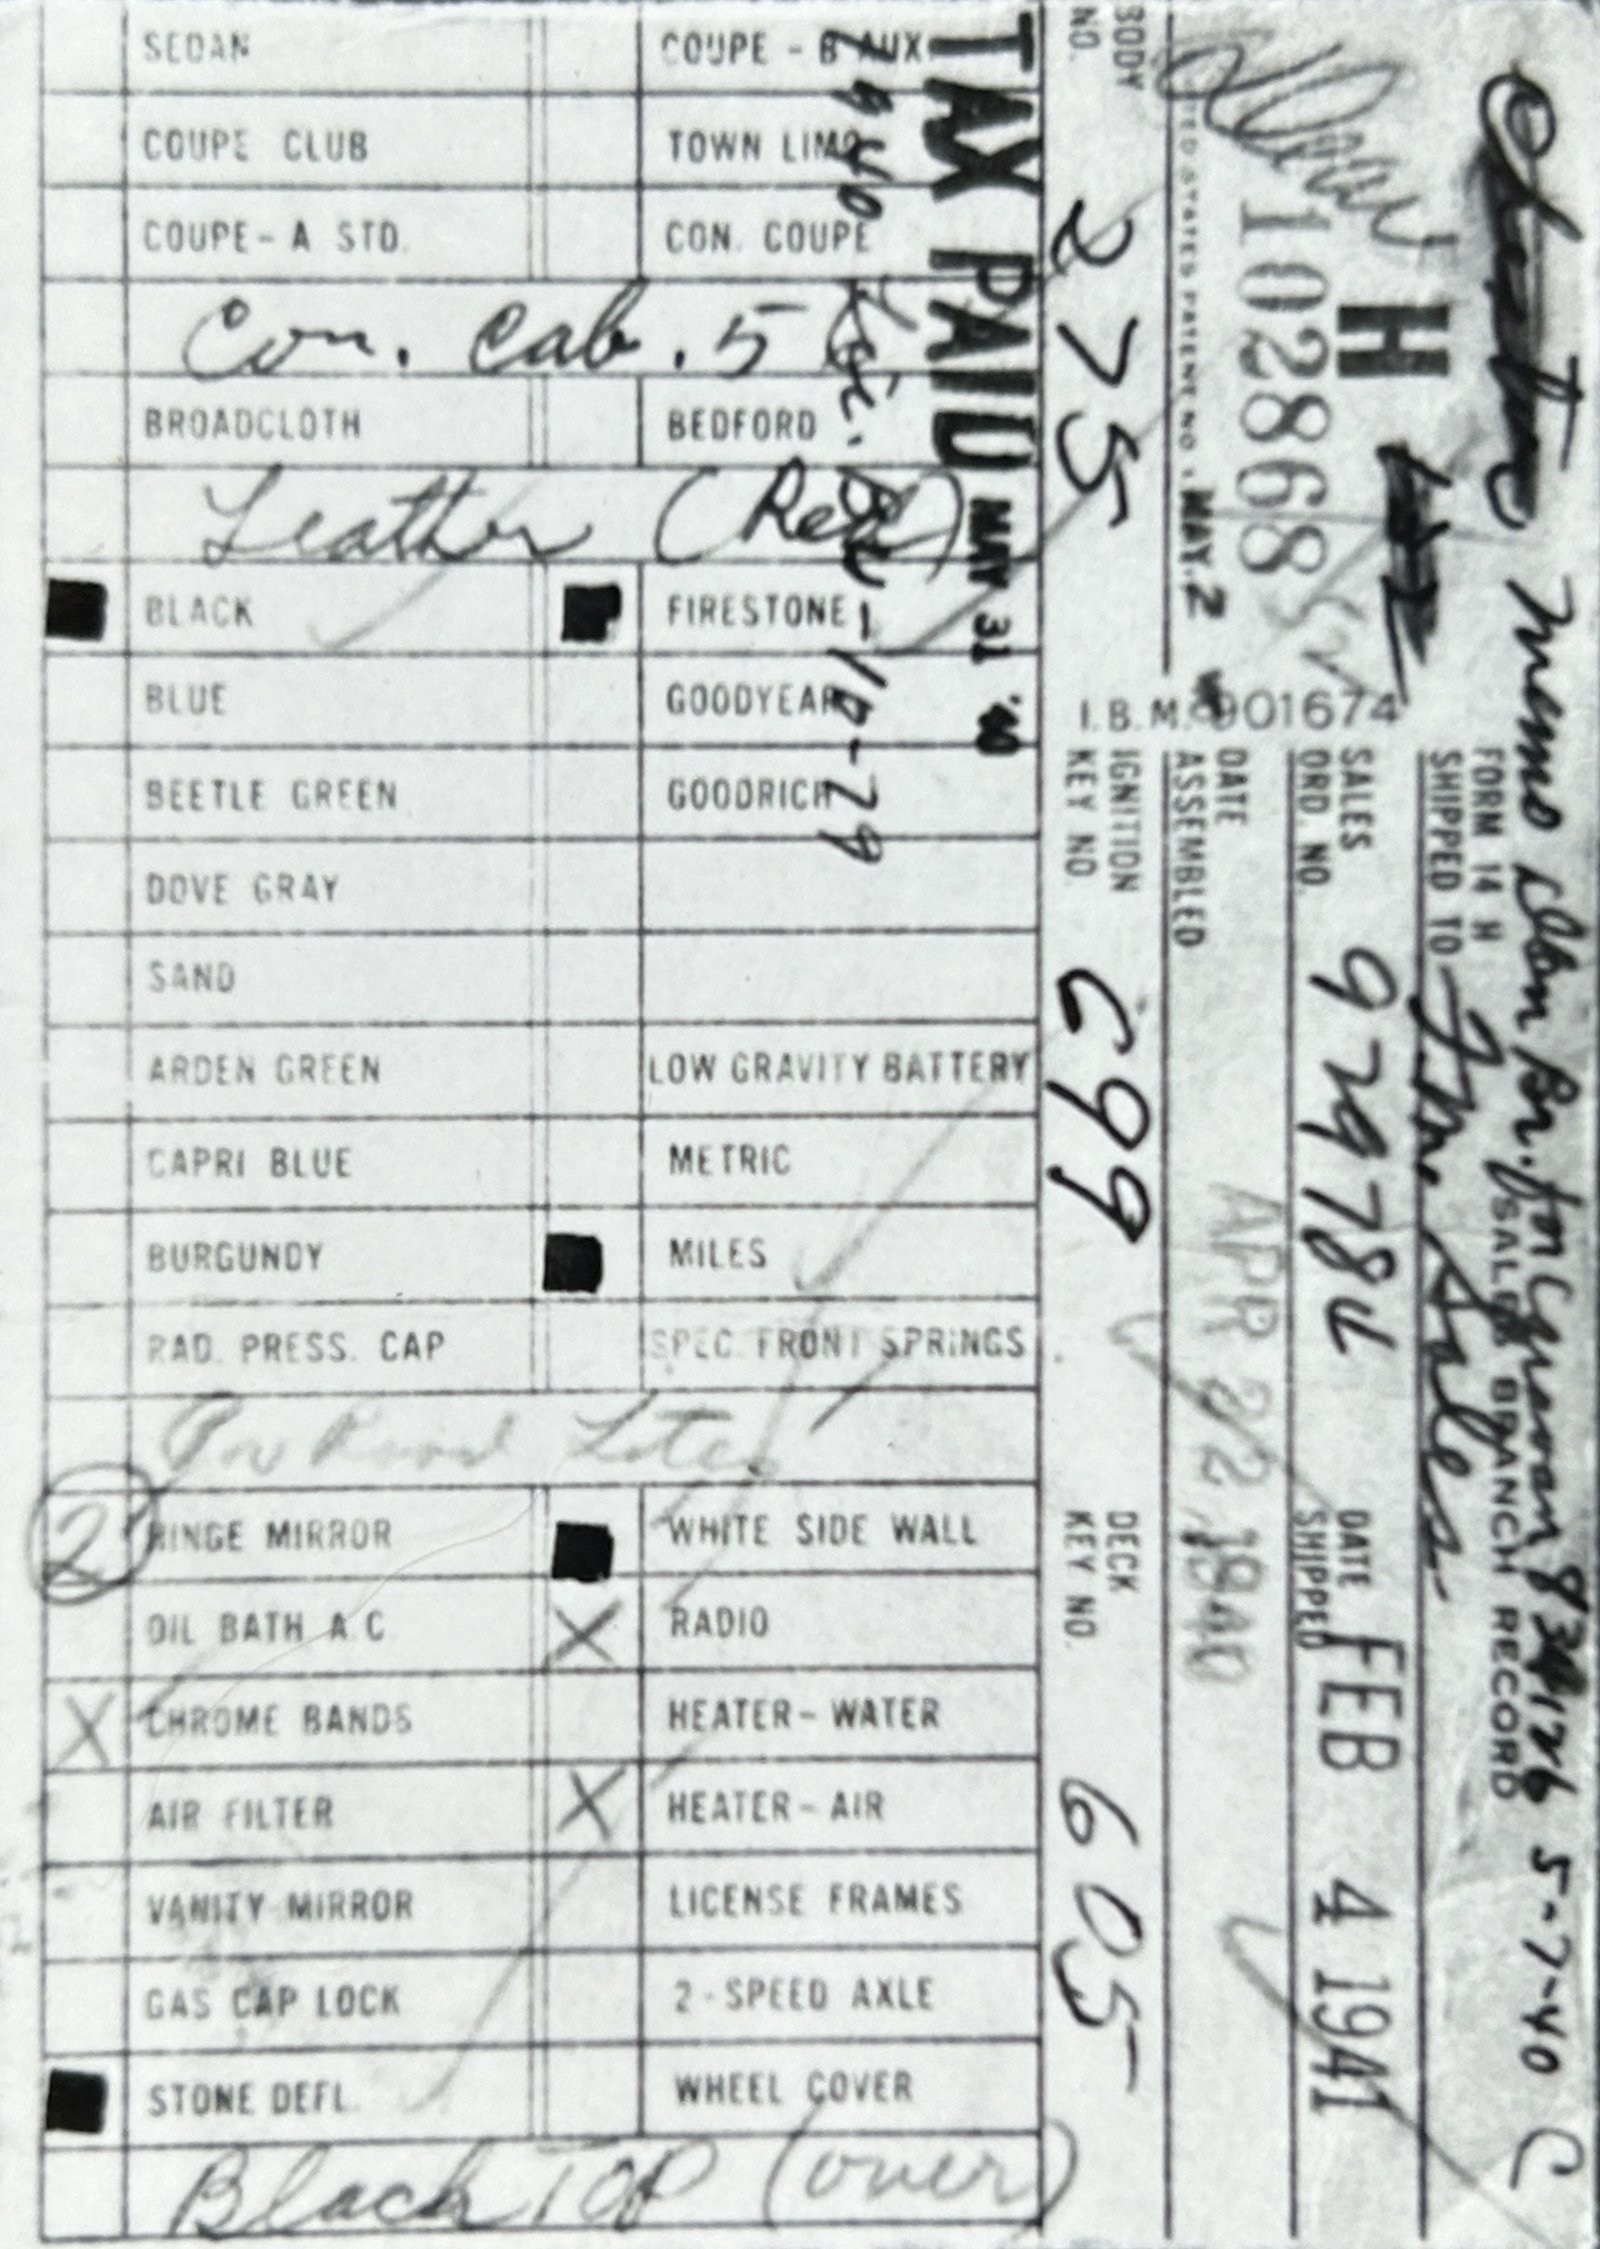 SEDAN
COUPE - B AUX
COUPE CLUB
TOWN LIMO
COUPE - A STD.
CON. COUPE
Con. Cab. 5
BROADCLOTH
BEDFORD
Leather (Red)
BLACK
FIRESTONE
BLUE
GOODYEAR
BEETLE GREEN
GOODRICH
DOVE GRAY
SAND
ARDEN GREEN
LOW GRAVITY BATTERY
CAPRI BLUE
METRIC
BURGUNDY
MILES
RAD. PRESS. CAP
SPEC. FRONT SPRINGS
2
HINGE MIRROR
WHITE SIDE WALL
OIL BATH A.C.
X
RADIO
X
CHROME BANDS
HEATER - WATER
AIR FILTER
X
HEATER - AIR
VANITY MIRROR
LICENSE FRAMES
GAS CAP LOCK
2 - SPEED AXLE
STONE DEFL.
WHEEL COVER
Black TOP (over)
TAX PAID MAY 31 '40
1940 Lic. 1-16-79
BODY NO. 275
IGNITION KEY NO. C99
DECK KEY NO. 605
H 102868
I.B.M. 901674
DATE ASSEMBLED APR 22 1940
SALES ORD. NO.
DATE SHIPPED FEB 4 1941
FORM 14 H
SALES BRANCH RECORD
SHIPPED TO
5-7-40